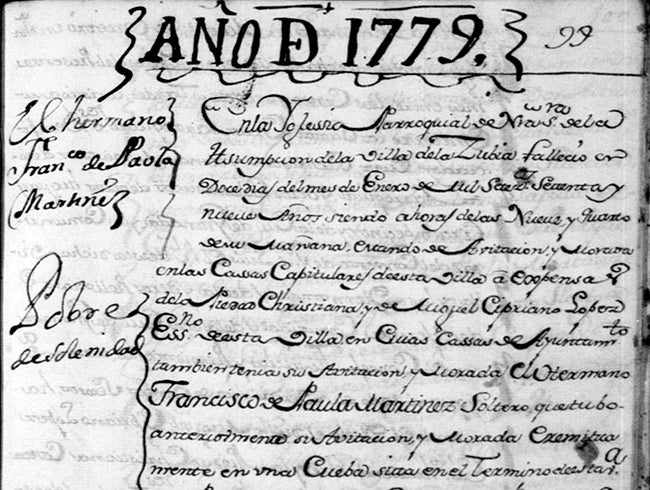 AÑO Đ 1779.
99
El hermano
Fran.co de Paula
Martinez
Pobre
de Solenidad
En la Yglesia Parroquial de Nra S.ra de la
Asumpcion de la Villa de la Zubia, fallecio en
Doce dias del mes de Enero de Mil Setez. Setenta y
nueve Años siendo ahoras de las Nueve, y Quarto
de su Mañana, estando de Avitacion, y Morada
en las Cassas Capitulares de esta Villa a expensas
de la Piedad Christiana, y de Miguel Cipriano Lopez
Ess.no de esta Villa en Cuias Cassas de Ayuntam.to
tambien tenia su Avitacion, y Morada el Hermano
Francisco de Paula Martinez Soltero, que tubo
anteriormente su Avitacion, y Morada Eremitica
mente en una Cueba sita en el Termino de esta V.a